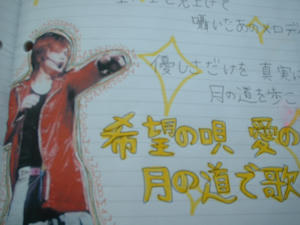 見上げて
囁いたあのメロデ
優しさだけを 真実に
月の道を歩こ
希望の唄 愛の
月の道で歌